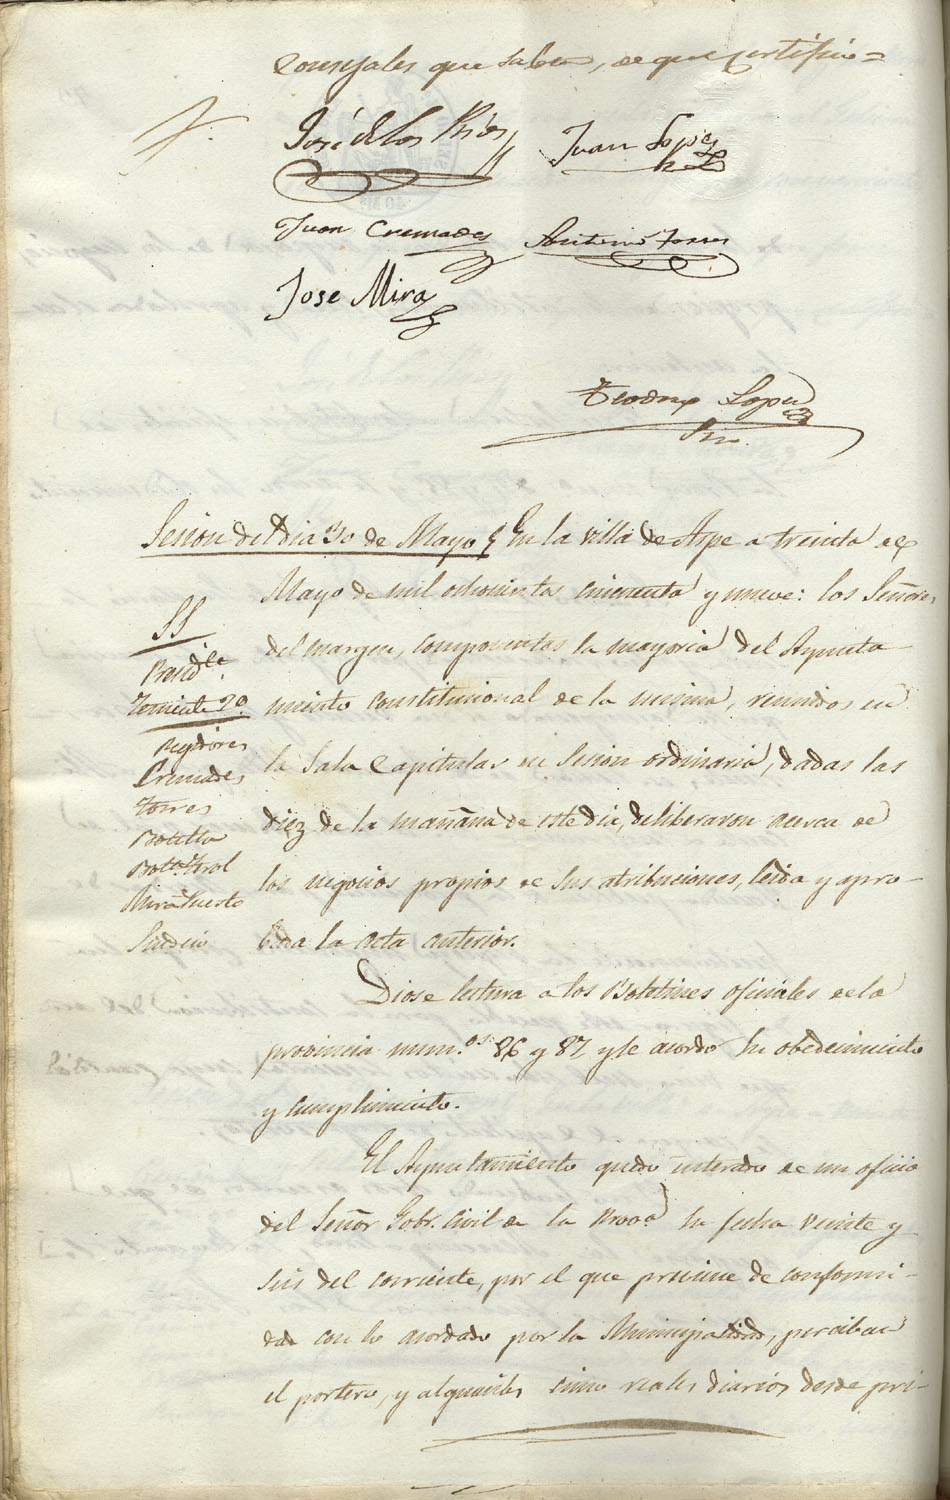 concejales que saben, de que certifico=
José de los Rios
Juan Lopez
Juan Cremades
Antonio Torres
Jose Mira
Teodoro Lopez
Srio.
Sesion del dia 30 de Mayo § En la villa de Aspe a treinta de
Mayo de mil ochocientos cincuenta y nueve: los Señores
del margen, componentes la mayoria del Ayunta
miento constitucional de la misma, reunidos en
la Sala Capitular en sesion ordinaria, dadas las
diez de la mañana de este dia, deliberaron acerca de
los negocios propios de sus atribuciones, leida y apro-
bada la acta anterior.
SS
Presid.te
Teniente 2º
Regidores
Cremades
Torres
Botella
Mira Puerto
Sindico
Diose lectura a los Boletines oficiales de la
provincia num.os 86 y 87 y se acordo su obedecimiento
y cumplimiento.
El Ayuntamiento quedo enterado de un oficio
del Señor Gobr. Civil de la Prova su fecha veinte y
seis del corriente, por el que previene de conformi-
dad con lo acordado por la Municipalidad, perciban
el portero, y alguaciles cinco reales diarios desde pri-